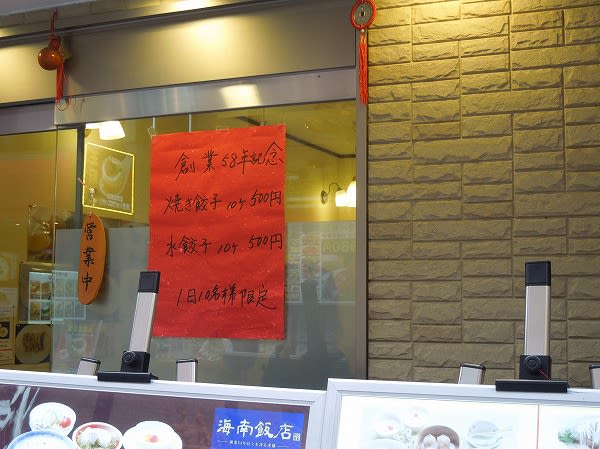 創業58年記念
焼き餃子 10ケ 500円
水餃子 10ケ 500円
1日10名様限定
営業中
海南飯店